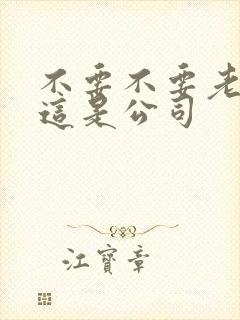 不要不要老
這是公司
江寶章